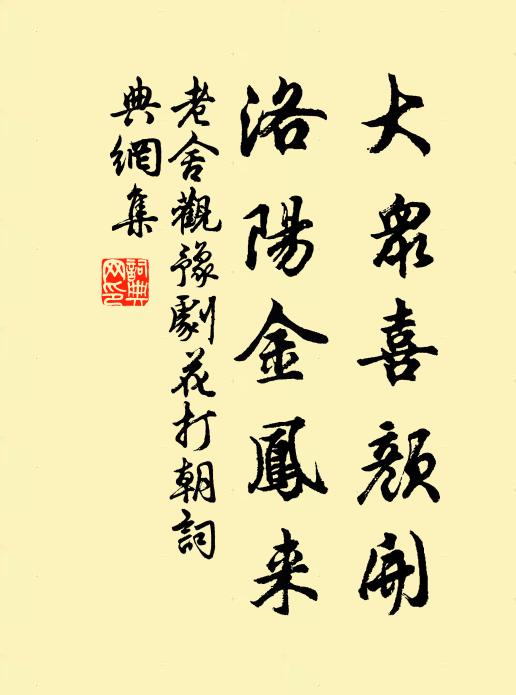 大眾喜顏開
洛陽金鳳来
老舍觀豫劇花打朝詞
典網集
詞典网印